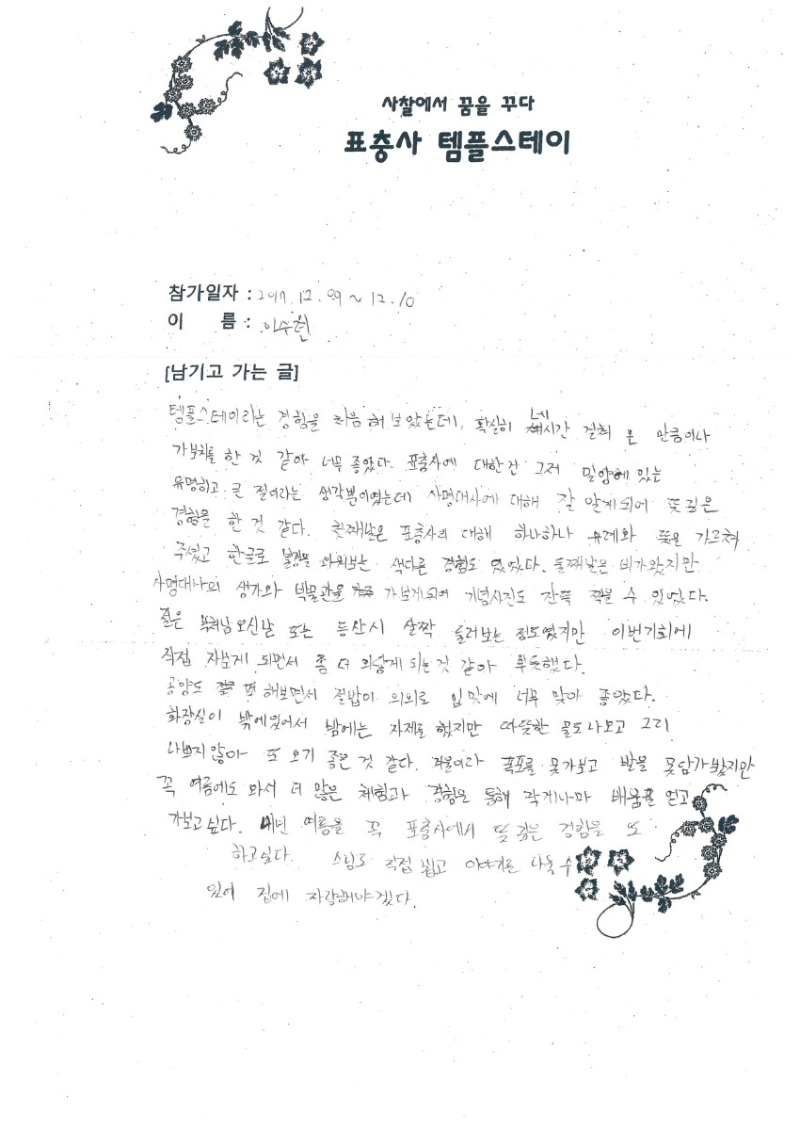 사찰에서 꿈을 꾸다
표충사 템플스테이
참가일자 : 2017. 12. 09 ~ 12. 10
이 름 : 이수현
[남기고 가는 글]
템플스테이라는 경험을 처음 해 보았는데, 확실히 네시간 걸쳐 온 만큼이나
가부치를 한 것 같아 너무 좋았다. 표충사에 대한건 그저 밀양에 있는
유명하고 큰 절이라는 생각뿐이였는데 사명대사에 대해 잘 알게되어 뜻깊은
경험을 한 것 같다. 첫째날은 표충사의 대해 하나하나 유례와 뜻을 가르쳐
주셨고 한글로 불경을 외워보는 색다른 경험도 있었다. 둘째날은 비가왔지만
사명대사의 생가와 박물관을 가보게되어 기념사진도 잔뜩 찍을 수 있었다.
절은 부처님 오신날 또는 등산시 살짝 둘러보는 정도였지만 이번기회에
직접 자보게 되면서 좀 더 알게 되는것 같아 뿌듯했다.
공양도 또 해보면서 절밥이 의외로 입맛에 너무 맞아 좋았다.
화장실이 밖에있어서 밤에는 자제를 했지만 따뜻한 물도나오고 그리
나쁘지않아 또 오기 좋은 것 같다. 겨울이라 폭포를 못가보고 발을 못담가봤지만
꼭 여름에도 와서 더 많은 체험과 경험을 통해 작게나마 배움을 얻고
가보고싶다. 내년 여름을 꼭 표충사에서 뜻 깊은 경험을 또
하고싶다. 스님도 직접 뵙고 이야기도 나눌 수
있어 집에 자랑해야겠다.